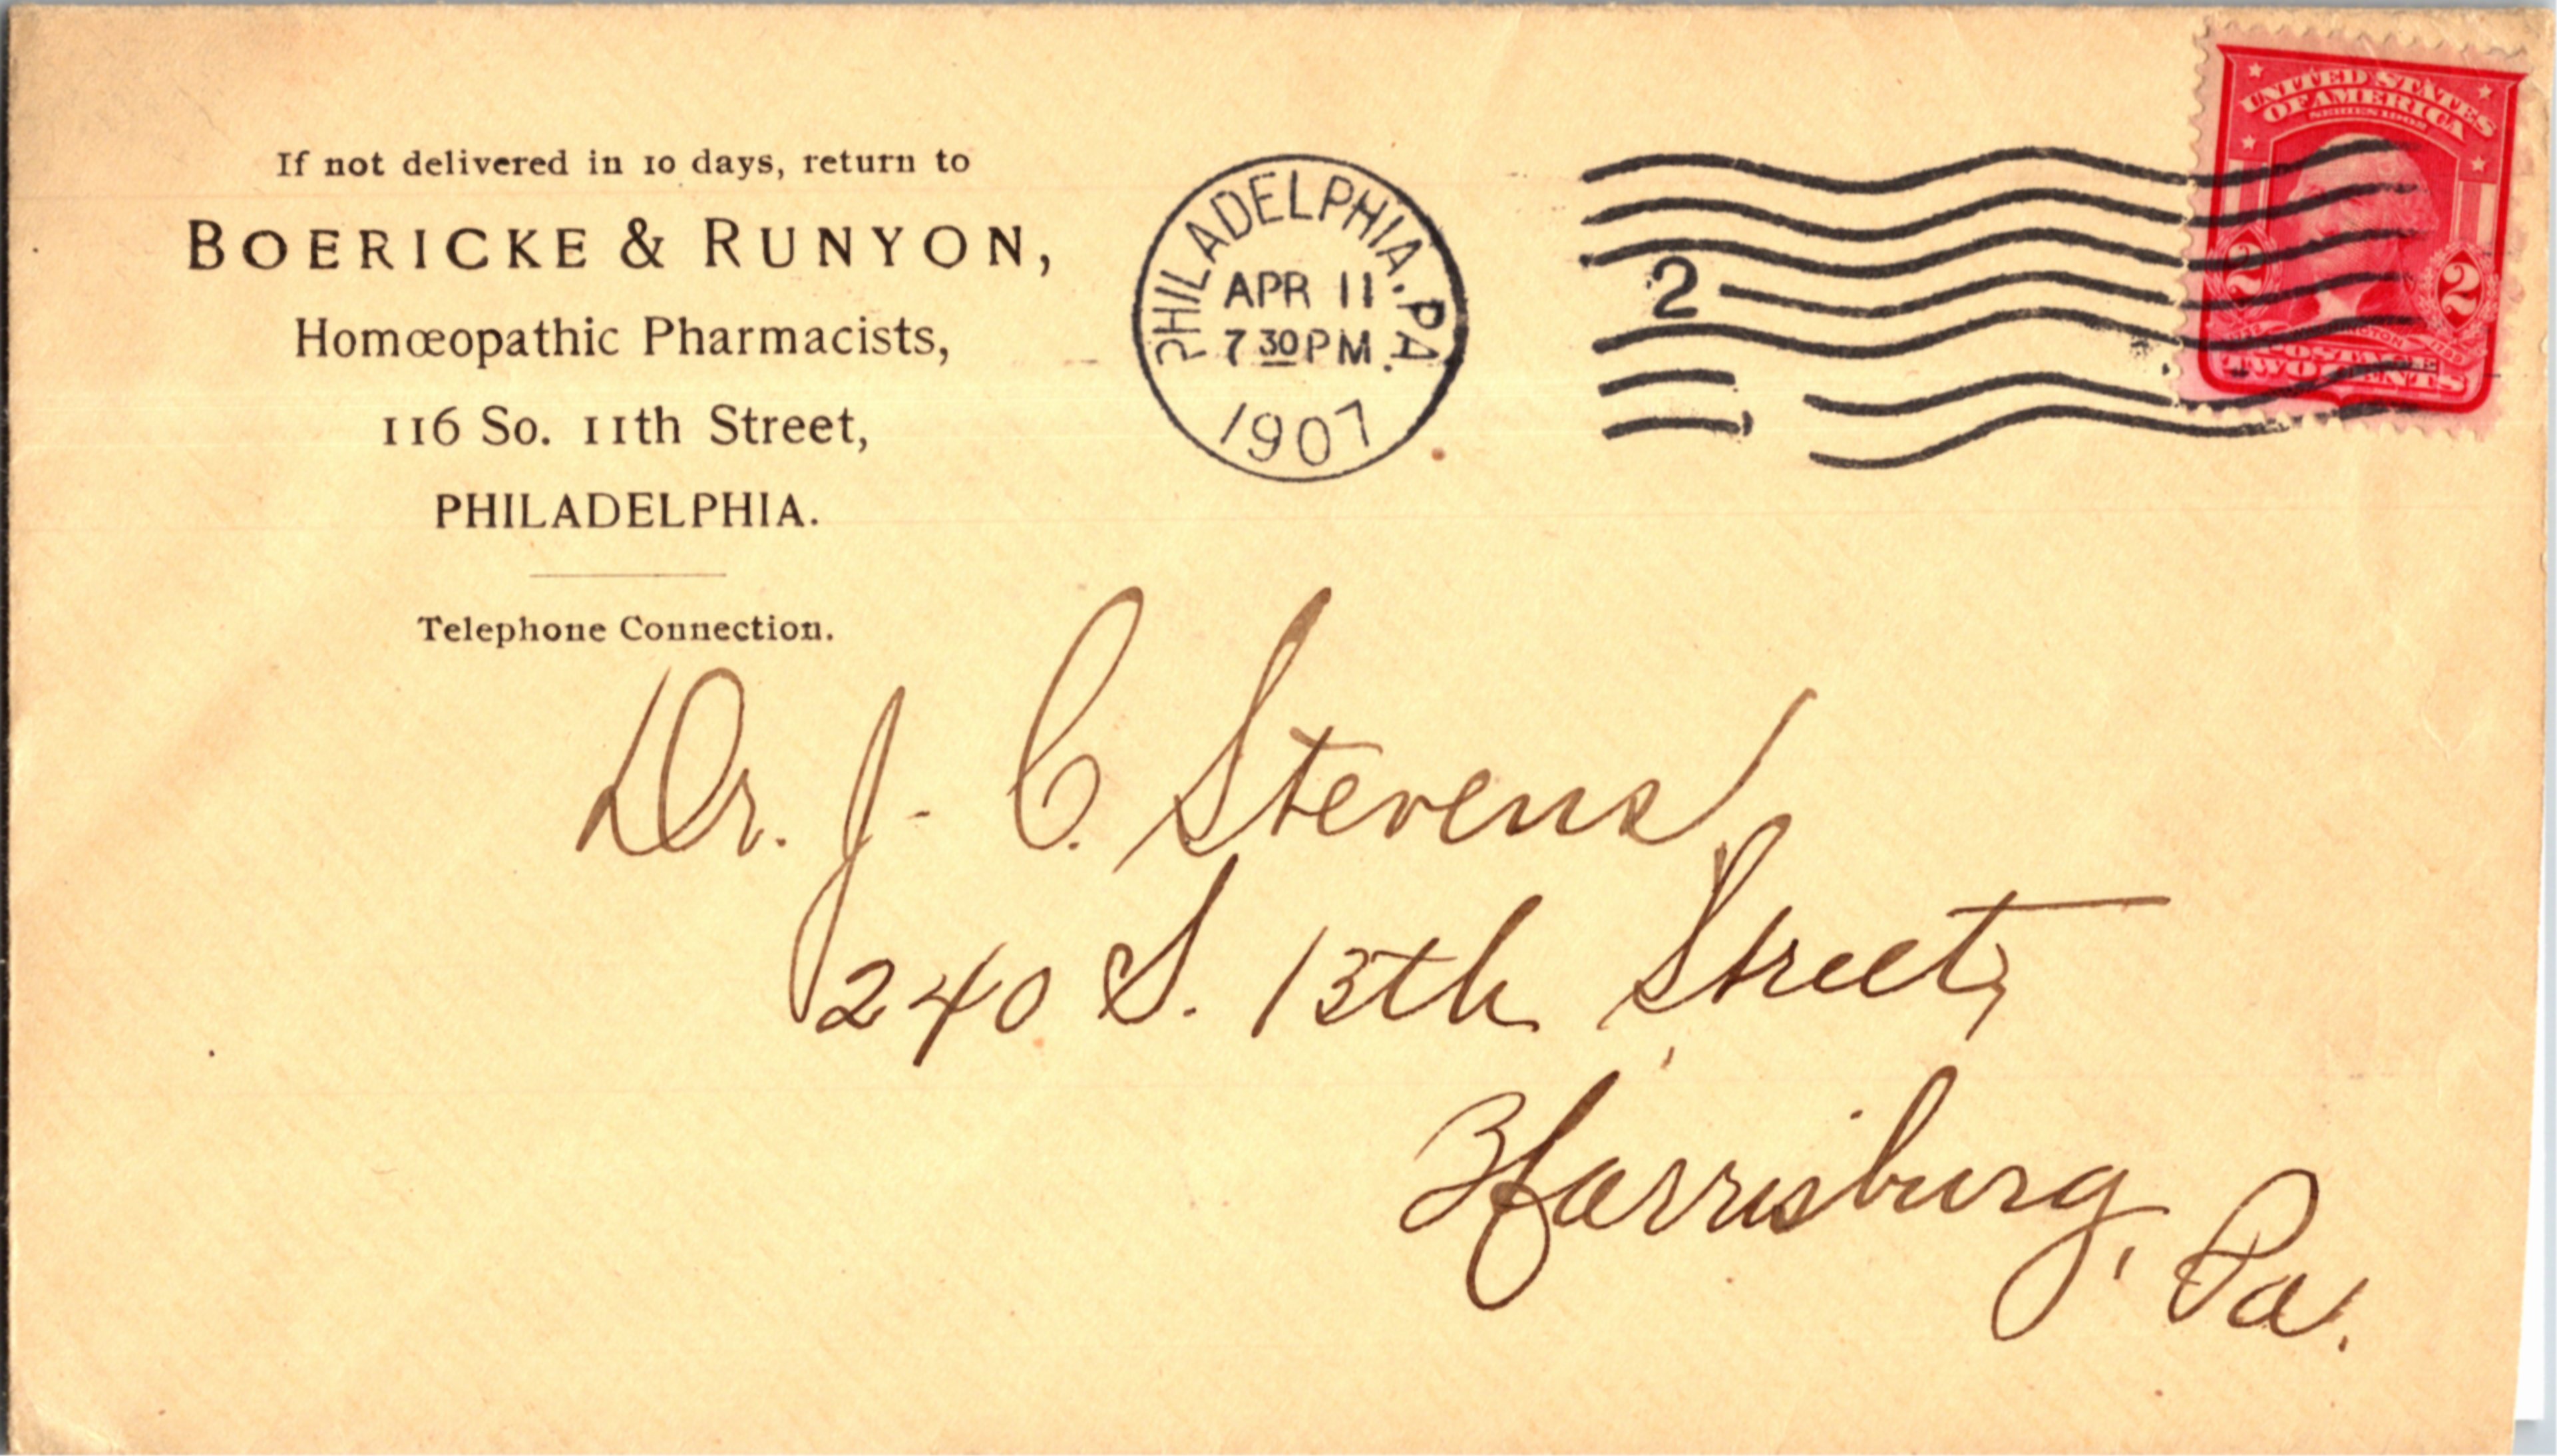 If not delivered in 10 days, return to
BOERICKE & RUNYON,
Homœopathic Pharmacists,
116 So. 11th Street,
PHILADELPHIA.
Telephone Connection.
PHILADELPHIA. PA.
APR 11
7 30 PM
1907
2
UNITED STATES
OF AMERICA
SERIES 1902
2 2
WASHINGTON
POSTAGE
TWO CENTS
Dr. J. C. Stevens,
240 S. 13th Street,
Harrisburg, Pa.